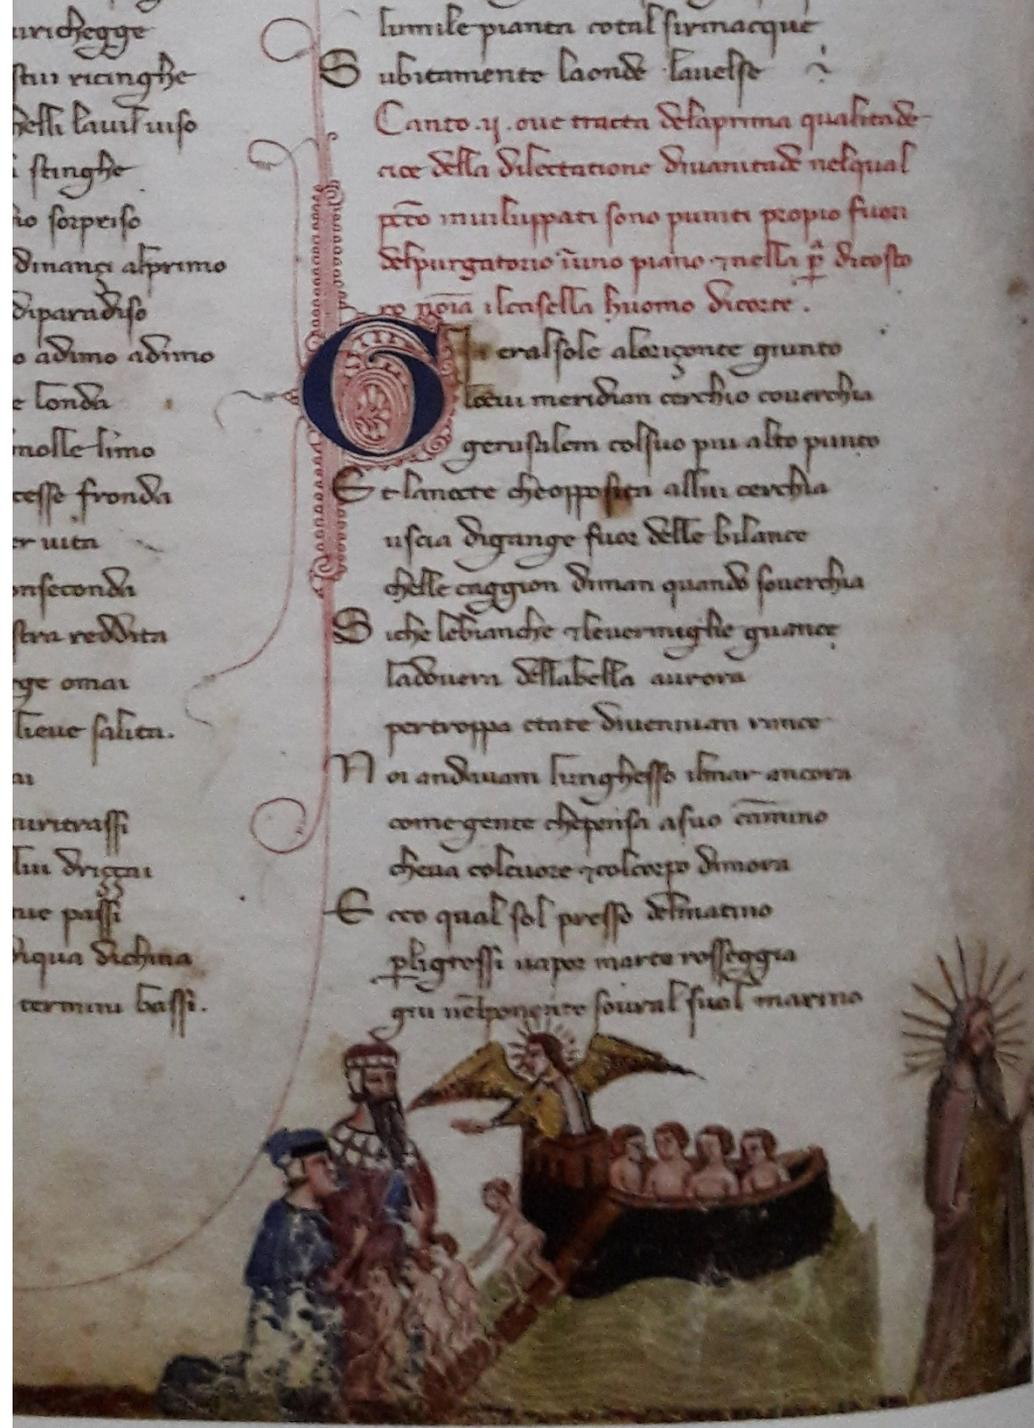 urichegge
stui ricinghe
helli lauil uiso
i stinghe
io sorpriso
dinançi alprimo
diparadiso
o adimo adimo
e londa
molle limo
cesse fronda
er uita
onseconda
stra reddita
ge omai
lieue salita.
ai
uritrassi
lui driççai
tue passi
diqua dichina
termini bassi.
lumile pianta cotal sirinacque
S ubitamente laonde lauelse
Canto .ij. oue tracta delaprima qualitade
cioe della dilectatione diuanitade nelqual
pccto inuiluppati sono puniti propio fuori
delpurgatorio iuno piano ⁊nella pa dicosto
ro noia ilcasella huomo dicorte .
G Ia eralsole aloriçonte giunto
locui meridian cerchio couerchia
gerusalem colsuo piu alto punto
E t lanocte cheopposita allui cerchia
uscia digange fuor delle bilance
chelle caggion diman quando souerchia
S iche lebianche ⁊leuermiglie guançe
ladouera dellabella aurora
pertroppa etate diueniuan rance
N oi andauam lunghesso ilmar ancora
come gente chepensa asuo camino
cheua colcuore ⁊colcorpo dimora
E cco qual sol presso delmatino
pligrossi uapor marte rosseggia
giu nelponente soural suol marino